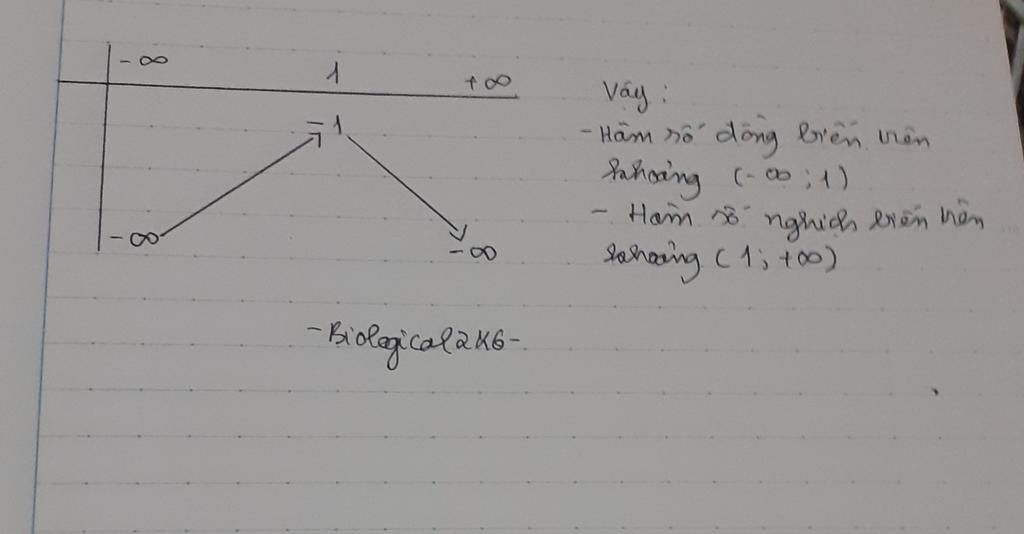 -∞ 1 +∞
-1
-∞ -∞
Vậy :
- Hàm số đồng biến trên
khoảng (-∞ ; 1)
- Hàm số nghịch biến trên
khoảng (1 ; +∞)
-Biological2K6-